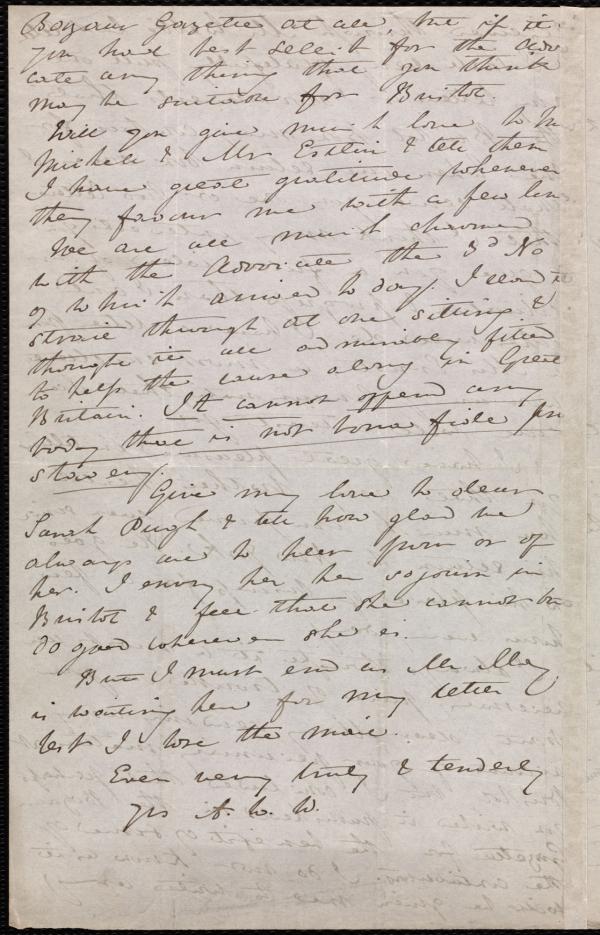 Bazaar Gazette at all, but if it
you had best select for the Advo
cate any thing that you think
may be suitable for Bristol.
Will you give much love to M
Michell & Mr Estlin & tell them
I have great gratitude whenever
they favour me with a few lin
We are all much charmed
with the Advocate the 3d No
of which arrived to day. I read it
straight through at one sitting &
thought it all admirably fitted
to help the cause along in Great
Britain. It cannot offend any
body that is not bona fide pro
slavery.
Give my love to dear
Sarah Pugh & tell how glad we
always are to hear from or of
her. I envy her her sojourn in
Bristol & feel that she cannot but
do good wherever she is.
But I must end as Mr May
is waiting here for my letter
lest I lose the mail.
Ever very truly & tenderly
yrs A. W. W.